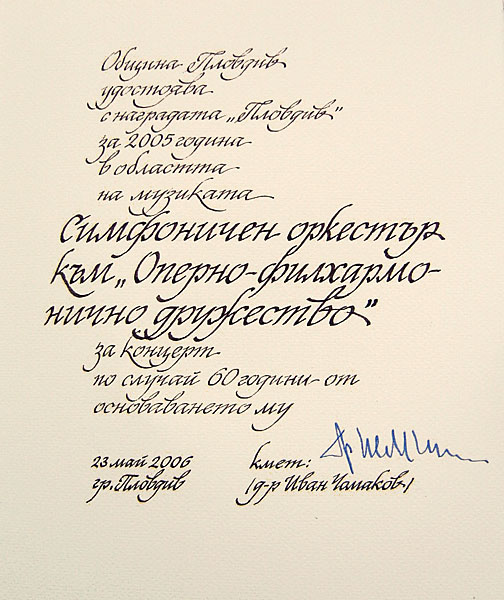 Община Пловдив
удостоява
с наградата „Пловдив"
за 2005 година
в областта
на музиката
Симфоничен оркестър
към „Оперно-филхармо-
нично дружество"
за концерт
по случай 60 години от
основаването му
23 май 2006
гр. Пловдив
кмет:
/д-р Иван Чамаков/